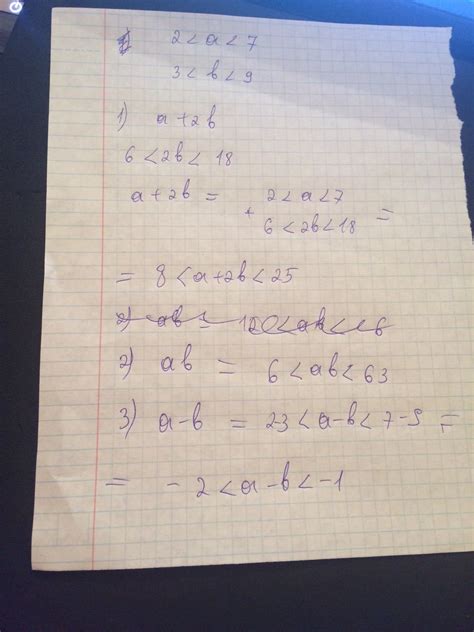 2 < a < 7
3 < b < 9
1) a + 2b
6 < 2b < 18
a + 2b = + 2 < a < 7
6 < 2b < 18 =
= 8 < a + 2b < 25
2) ab = 6 < ab < 63
3) a - b = 2-3 < a - b < 7-9 =
= -2 < a - b < -1